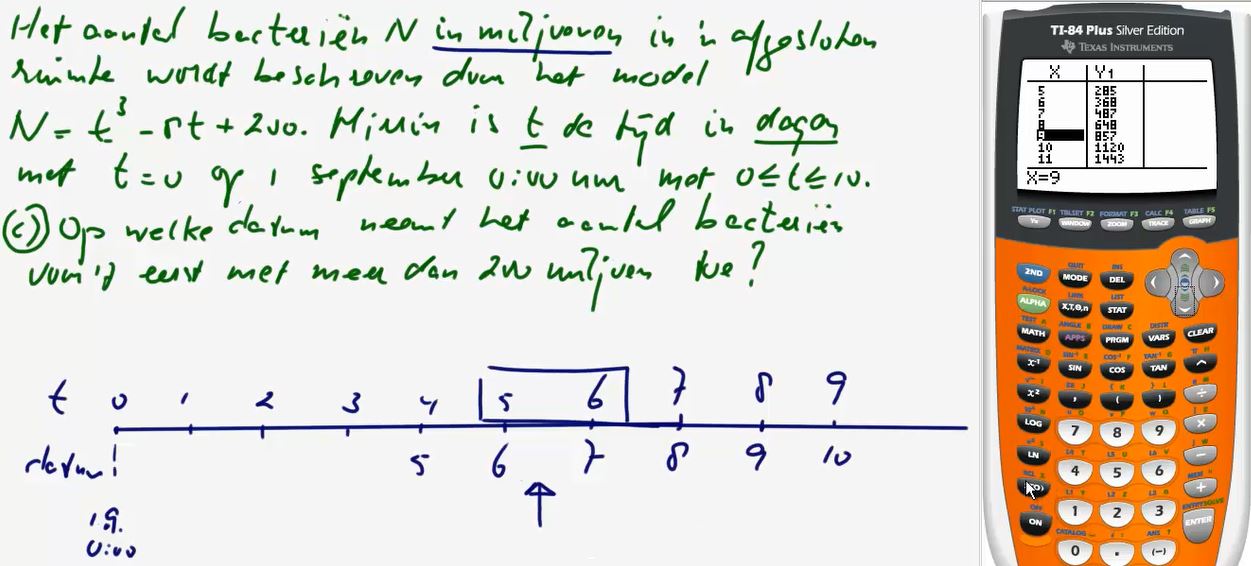 Het aantal bacteriën N in miljoenen in 'n afgesloten
ruimte wordt beschreven door het model
N = t³ - 8t + 200. Hierin is t de tijd in dagen
met t = 0 op 1 september 0:00 uur met 0 ≤ t ≤ 10.
(c) Op welke datum neemt het aantal bacteriën
voor 't eerst met meer dan 200 miljoen toe?
t 0 1 2 3 4 5 6 7 8 9
datum! 5 6 7 8 9 10
1.9.
0:00
TI-84 Plus Silver Edition
TEXAS INSTRUMENTS
X Y1
5 285
6 368
7 487
8 648
9 857
10 1120
11 1443
X=9
STAT PLOT F1 TBLSET F2 FORMAT F3 CALC F4 TABLE F5
Y= WINDOW ZOOM TRACE GRAPH
QUIT INS
2ND MODE DEL
A-LOCK LINK LIST
ALPHA X,T,θ,n STAT
TEST A ANGLE B DRAW C DISTR
MATH APPS PRGM VARS CLEAR
x⁻¹ SIN COS TAN ^
x² , ( ) ÷
LOG 7 8 9 ×
LN 4 5 6 −
1 2 3 +
OFF
ON 0 . (−) ENTER